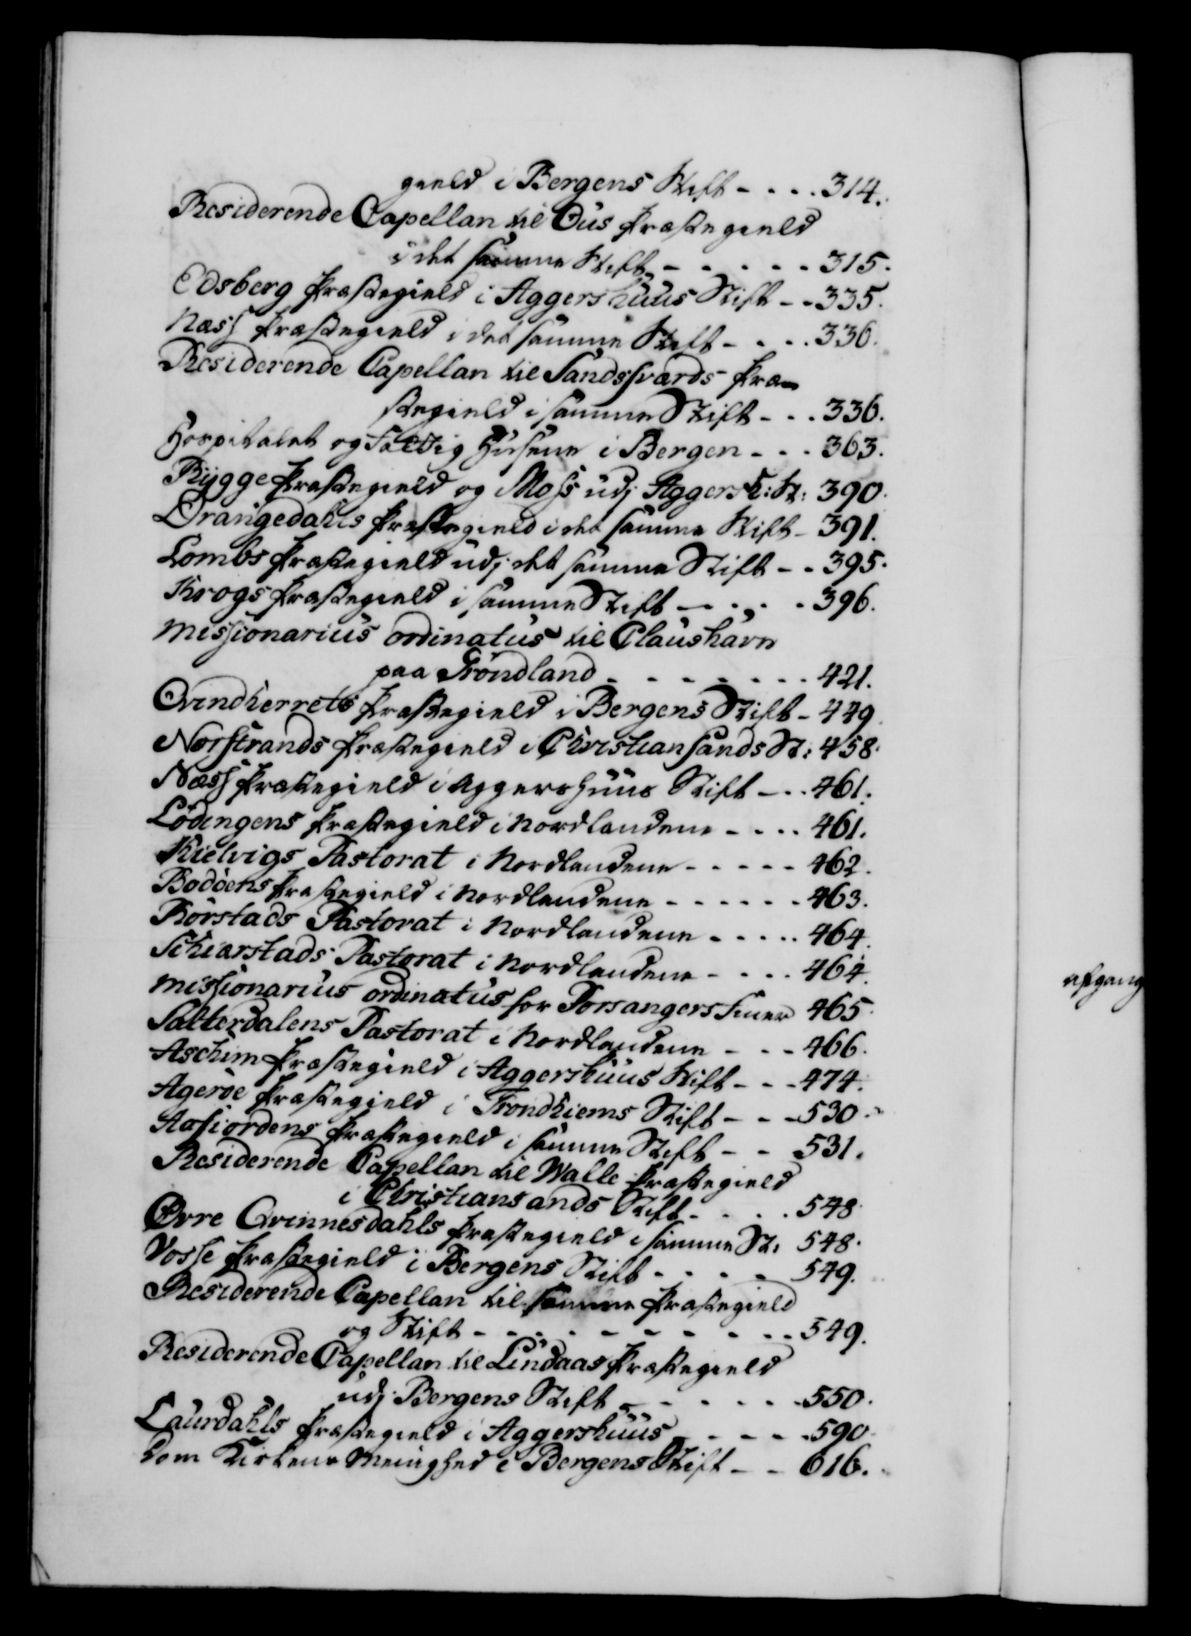 gield i Bergens Stift - . . . 314.
Residerende Capellan til Ous Præstegield
i det samme Stift - - . . . . 315.
Edsberg Præstegield i Aggershuus Stift - - 335.
Næss Præstegield i det samme Stift - . . . 336.
Residerende Capellan til Sandssværds Præ-
stegield i samme Stift - . . 336.
Hospitalet og Fattig Husene i Bergen - . . 363.
Rygge Præstegield og Moss udj Aggersh: St: 390.
Drangedahls Præstegield i det samme Stift - 391.
Lombs Præstegield udj det samme Stift - - 395.
Krogs Præstegield i samme Stift - . . . 396.
Missionarius ordinatus til Claushavn
paa Gröndland - - - - - - . . 421.
Qvindherrets Præstegield i Bergens Stift - 449
Norstrands Præstegield i Christiansands St: 458.
Næss Præstegield i Aggershuus Stift - . . 461.
Lödingens Præstegield i Nordlandene - . . . 461.
Kielvigs Pastorat i Nordlandene - - - - - 462.
Bodöens Præstegield i Nordlandene - - - - - - 463.
Rörstads Pastorat i Nordlandene - . . . . 464.
Schiærstads Pastorat i Nordlandene - . . . 464.
Missionarius ordinatus for Porsangers Finer 465.
Salterdalens Pastorat i Nordlandene - - - 466.
Aschim Præstegield i Aggershuus Stift - - - 474.
Ageröe Præstegield i Trondhiems Stift - - - 530.
Aafiordens Præstegield i samme Stift - - 531.
Residerende Capellan til Walle Præstegield
i Christiansands Stift - . . . 548
Øvre Qvinnesdahls Præstegield i samme St: 548.
Vosse Præstegield i Bergens Stift - - - - 549.
Residerende Capellan til samme Præstegield
og Stift - - - - - - - - . . 549.
Residerende Capellan til Lindaas Præstegield
udj Bergens Stift - . . . . . 550.
Laurdahls Præstegield i Aggershuus - - - - 590.
Dom Kirkens Meenighed i Bergens Stift - - 616.
afgang